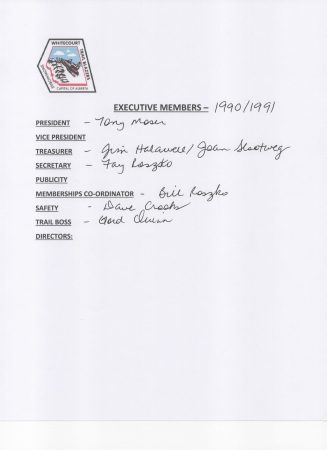 WHITECOURT
TRAIL BLAZERS
SNOWMOBILE
CAPITAL OF ALBERTA
EXECUTIVE MEMBERS – 1990/1991
PRESIDENT - Tony Moser
VICE PRESIDENT
TREASURER - Jim Halawell/Joan Slootweg
SECRETARY - Fay Roszko
PUBLICITY
MEMBERSHIPS CO-ORDINATOR - Bill Roszko
SAFETY - Dave Crooks
TRAIL BOSS - Gord Quinn
DIRECTORS: